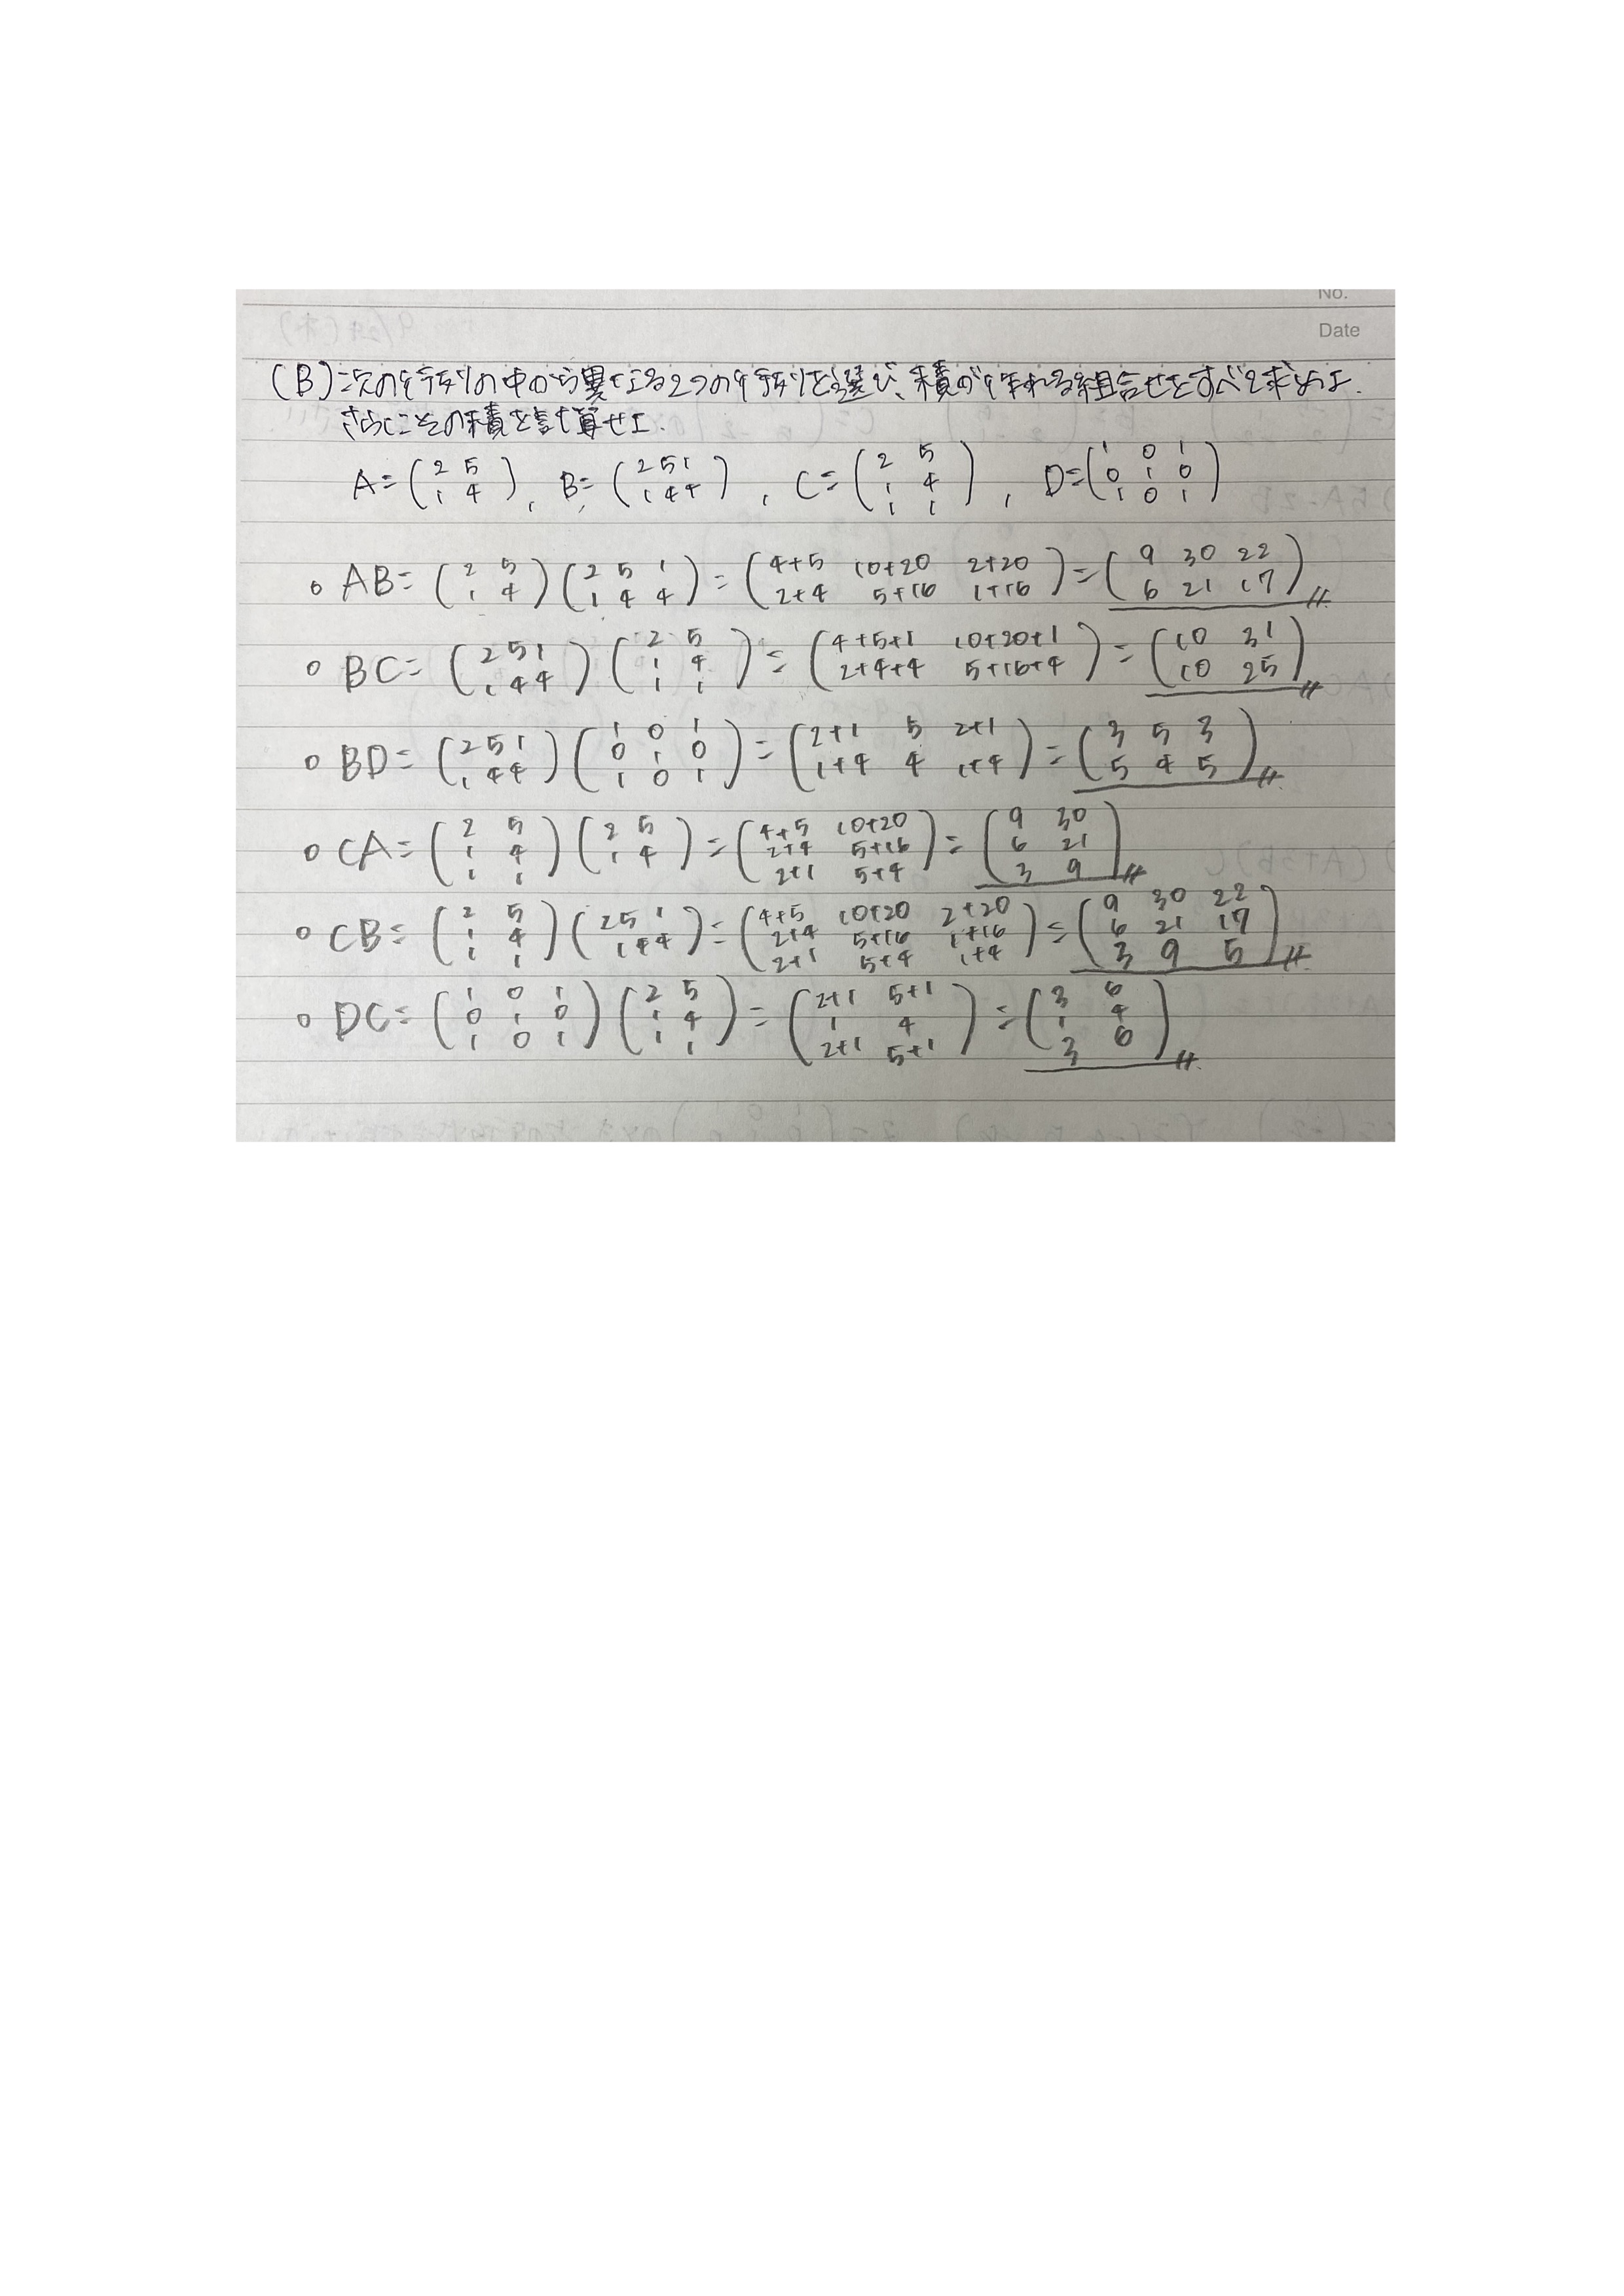 No.
Date
(B) 次の行列の中から異なる2つの行列を選び、積が作れる組合せをすべて求めよ.
さらにその積を計算せよ.
A=(2 5 / 1 4), B=(2 5 1 / 1 4 4), C=(2 5 / 1 4 / 1 1), D=(1 0 1 / 0 1 0 / 1 0 1)
○ AB=(2 5 / 1 4)(2 5 1 / 1 4 4)=(4+5 10+20 2+20 / 2+4 5+16 1+16)=(9 30 22 / 6 21 17)
○ BC=(2 5 1 / 1 4 4)(2 5 / 1 4 / 1 1)=(4+5+1 10+20+1 / 2+4+4 5+16+4)=(10 31 / 10 25)
○ BD=(2 5 1 / 1 4 4)(1 0 1 / 0 1 0 / 1 0 1)=(2+1 5 2+1 / 1+4 4 1+4)=(3 5 3 / 5 4 5)
○ CA=(2 5 / 1 4 / 1 1)(2 5 / 1 4)=(4+5 10+20 / 2+4 5+16 / 2+1 5+4)=(9 30 / 6 21 / 3 9)
○ CB=(2 5 / 1 4 / 1 1)(2 5 1 / 1 4 4)=(4+5 10+20 2+20 / 2+4 5+16 1+16 / 2+1 5+4 1+4)=(9 30 22 / 6 21 17 / 3 9 5)
○ DC=(1 0 1 / 0 1 0 / 1 0 1)(2 5 / 1 4 / 1 1)=(2+1 5+1 / 1 4 / 2+1 5+1)=(3 6 / 1 4 / 3 6)